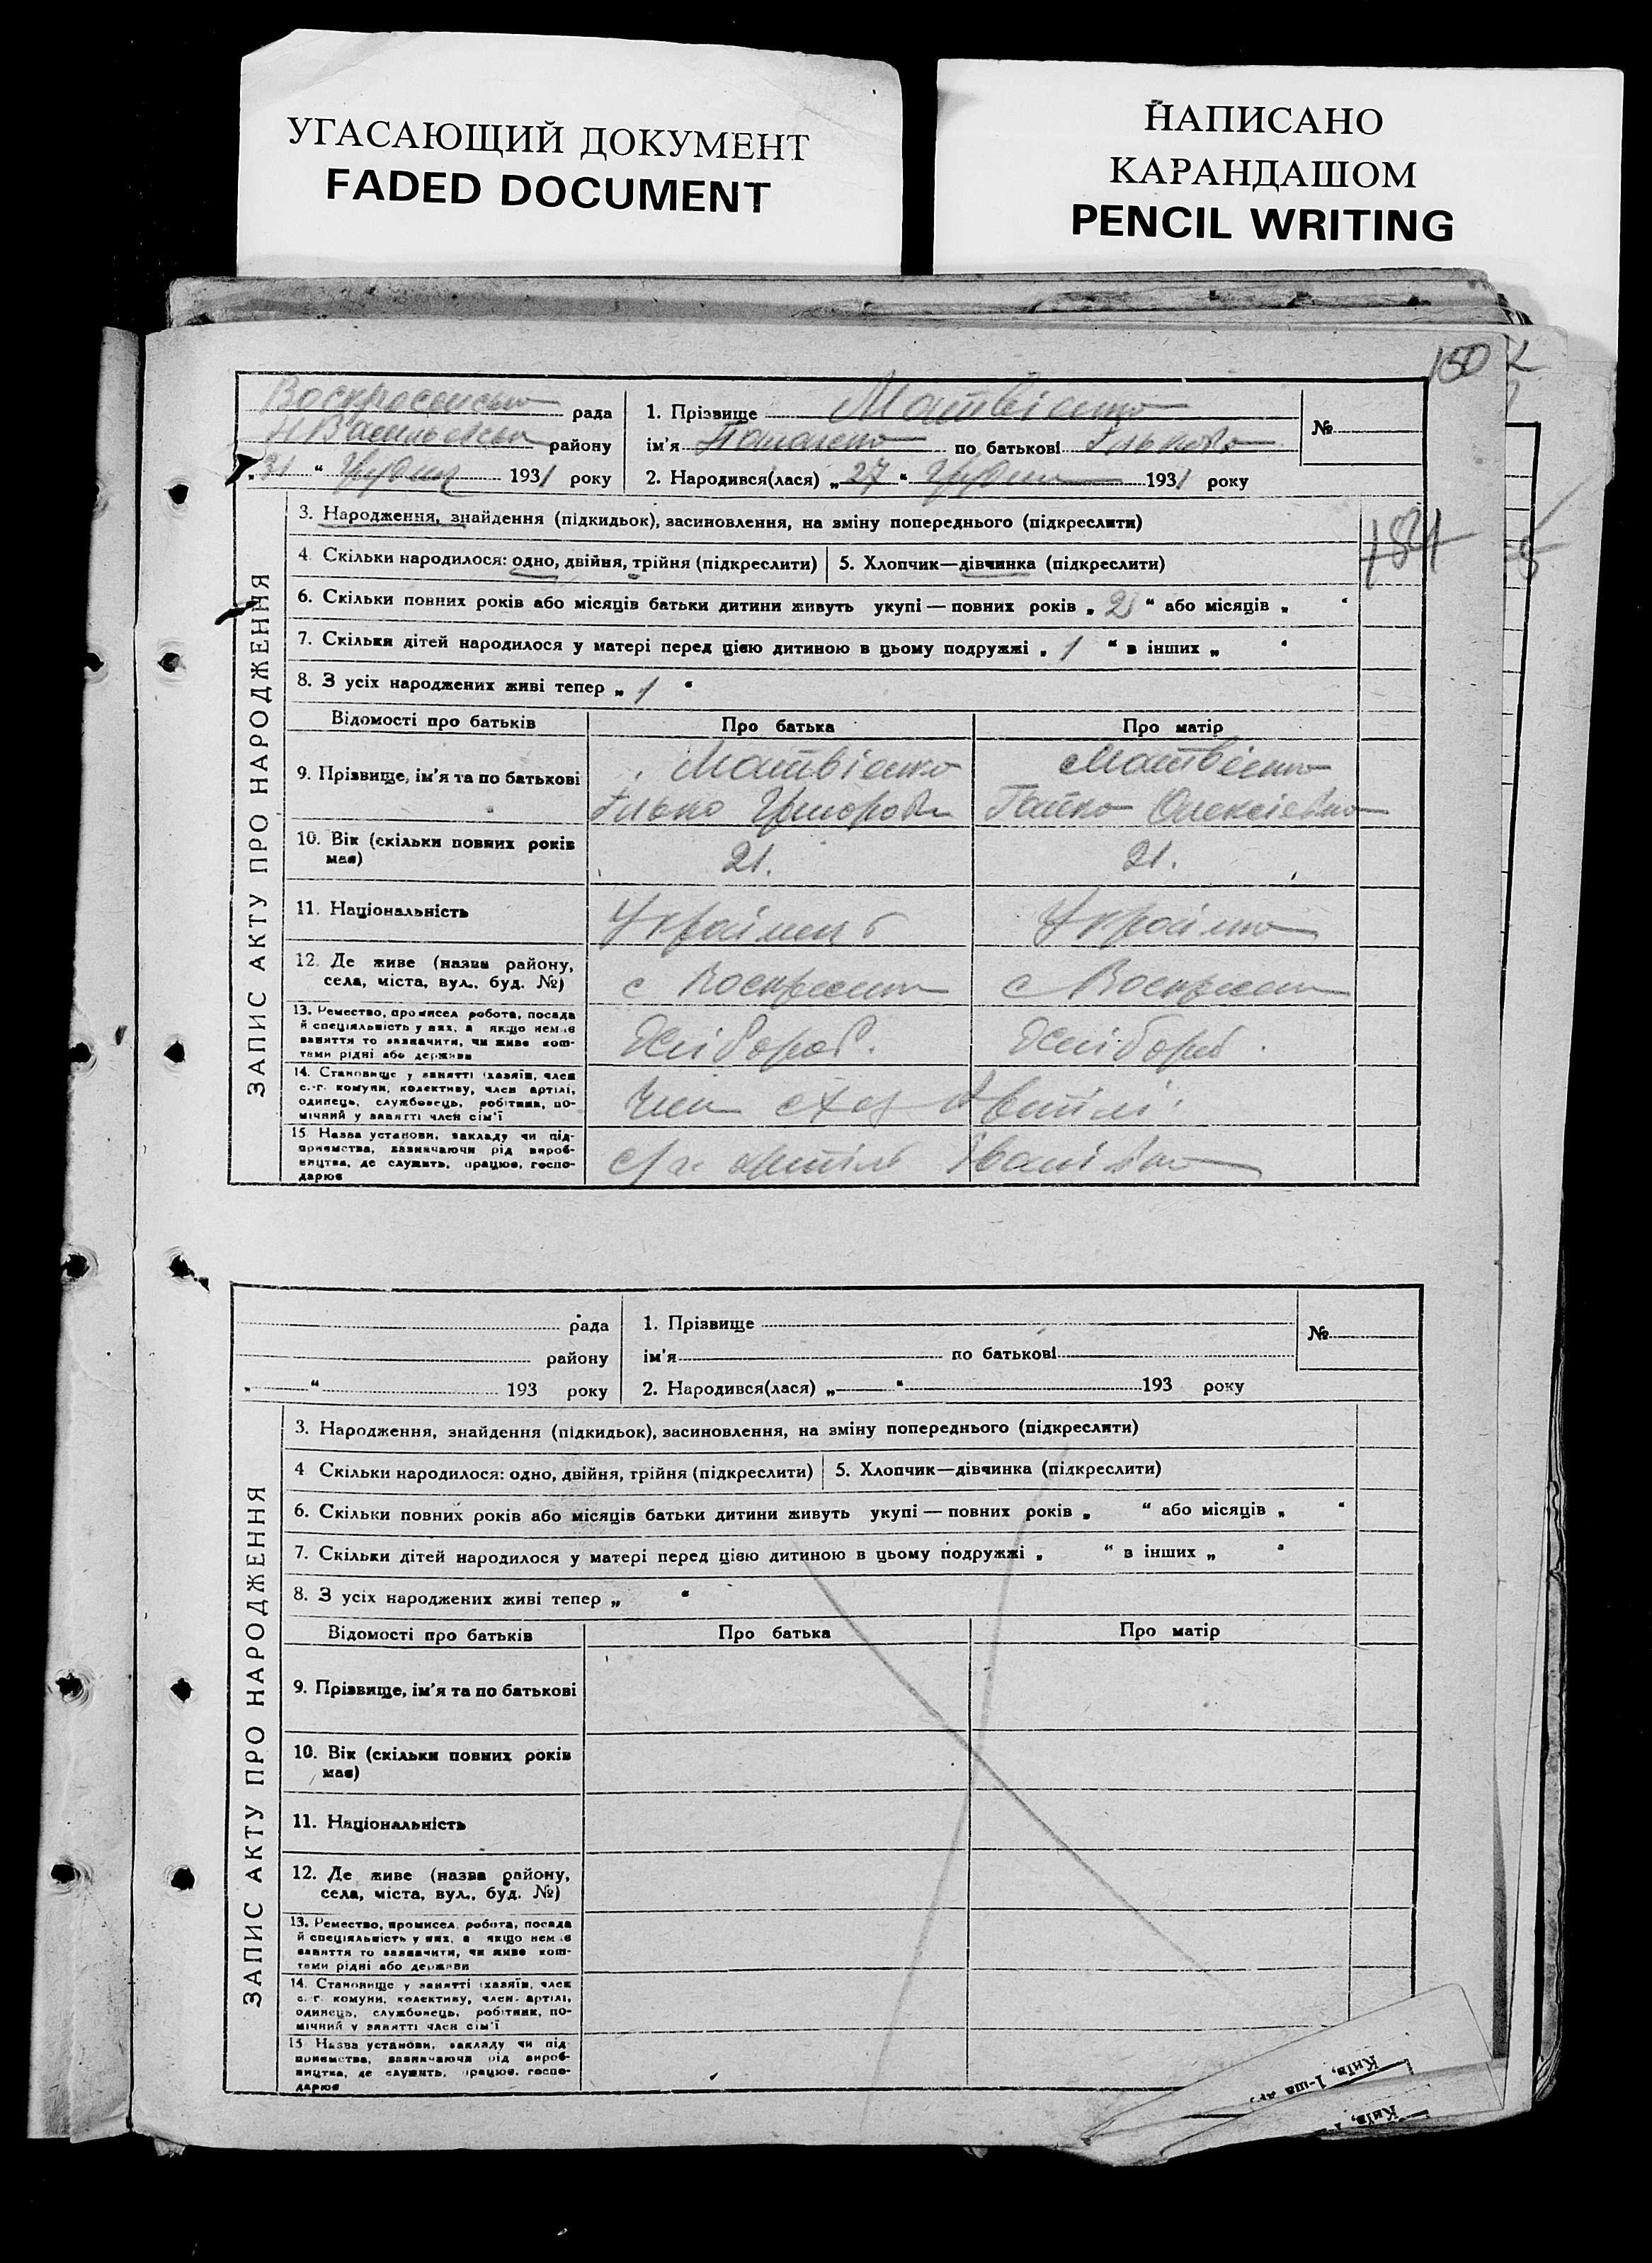 УГАСАЮЩИЙ ДОКУМЕНТ
FADED DOCUMENT
НАПИСАНО
КАРАНДАШОМ
PENCIL WRITING
150
ЗАПИС АКТУ ПРО НАРОДЖЕННЯ
Воскресенська рада
Н Васильевська району
„31 “ Грудня 1931 року
1. Прізвище Матвієнко
ім'я по батькові Ількова
№
2. Народився(лася) „ 27 “ Грудня 1931 року
3. Народження, знайдення (підкидьок), засиновлення, на зміну попереднього (підкреслити)
184
4 Скільки народилося: одно, двійня, трійня (підкреслити) 5. Хлопчик—дівчинка (підкреслити)
6. Скільки повних років або місяців батьки дитини живуть укупі — повних років „ 2 “ або місяців „ “
7. Скільки дітей народилося у матері перед цією дитиною в цьому подружжі „ 1 “ в інших „ “
8. З усіх народжених живі тепер „ 1 “
Відомості про батьків Про батька Про матір
9. Прізвище, ім'я та по батькові
Матвієнко Матвієнко
Ілько Григоров Олексіевна
10. Вік (скільки повних років має) 21. 21.
11. Національність Українець Українка
12. Де живе (назва району, села, міста, вул., буд. №) с Воскресенка с Воскресенка
13. Ремество, промисел робота, посада
й спеціяльність у них, а якщо немає
заняття то зазначити, чи живе кош-
тами рідні або держави
Хлібороб. Хлібороб.
14. Становище у занятті (хазяїн, член
с.-г. комуни, колективу, член артілі,
одинець, службовець, робітник, по-
мічний у занятті член сім'ї
Член
15 Назва установи, закладу чи під-
приємства, зазначаючи рід вироб-
ництва, де служить, працює, госпо-
дарює
артіль
ЗАПИС АКТУ ПРО НАРОДЖЕННЯ
рада
району
„ “ 193 року
1. Прізвище
ім'я по батькові
№
2. Народився(лася) „ “ 193 року
3. Народження, знайдення (підкидьок), засиновлення, на зміну попереднього (підкреслити)
4 Скільки народилося: одно, двійня, трійня (підкреслити) 5. Хлопчик—дівчинка (підкреслити)
6. Скільки повних років або місяців батьки дитини живуть укупі — повних років „ “ або місяців „ “
7. Скільки дітей народилося у матері перед цією дитиною в цьому подружжі „ “ в інших „ “
8. З усіх народжених живі тепер „ “
Відомості про батьків Про батька Про матір
9. Прізвище, ім'я та по батькові
10. Вік (скільки повних років
має)
11. Національність
12. Де живе (назва району,
села, міста, вул., буд. №)
13. Ремество, промисел, робота, посада
й спеціяльність у них, а якщо немає
заняття то зазначити, чи живе кош-
тами рідні або держави
14. Становище у занятті (хазяїн, член
с.-г. комуни, колективу, член артілі,
одинець, службовець, робітник, по-
мічний у занятті член сім'ї
15 Назва установи, закладу чи під-
приємства, зазначаючи рід вироб-
ництва, де служить, працює, госпо-
дарює
Київ, 1-ша
Київ,